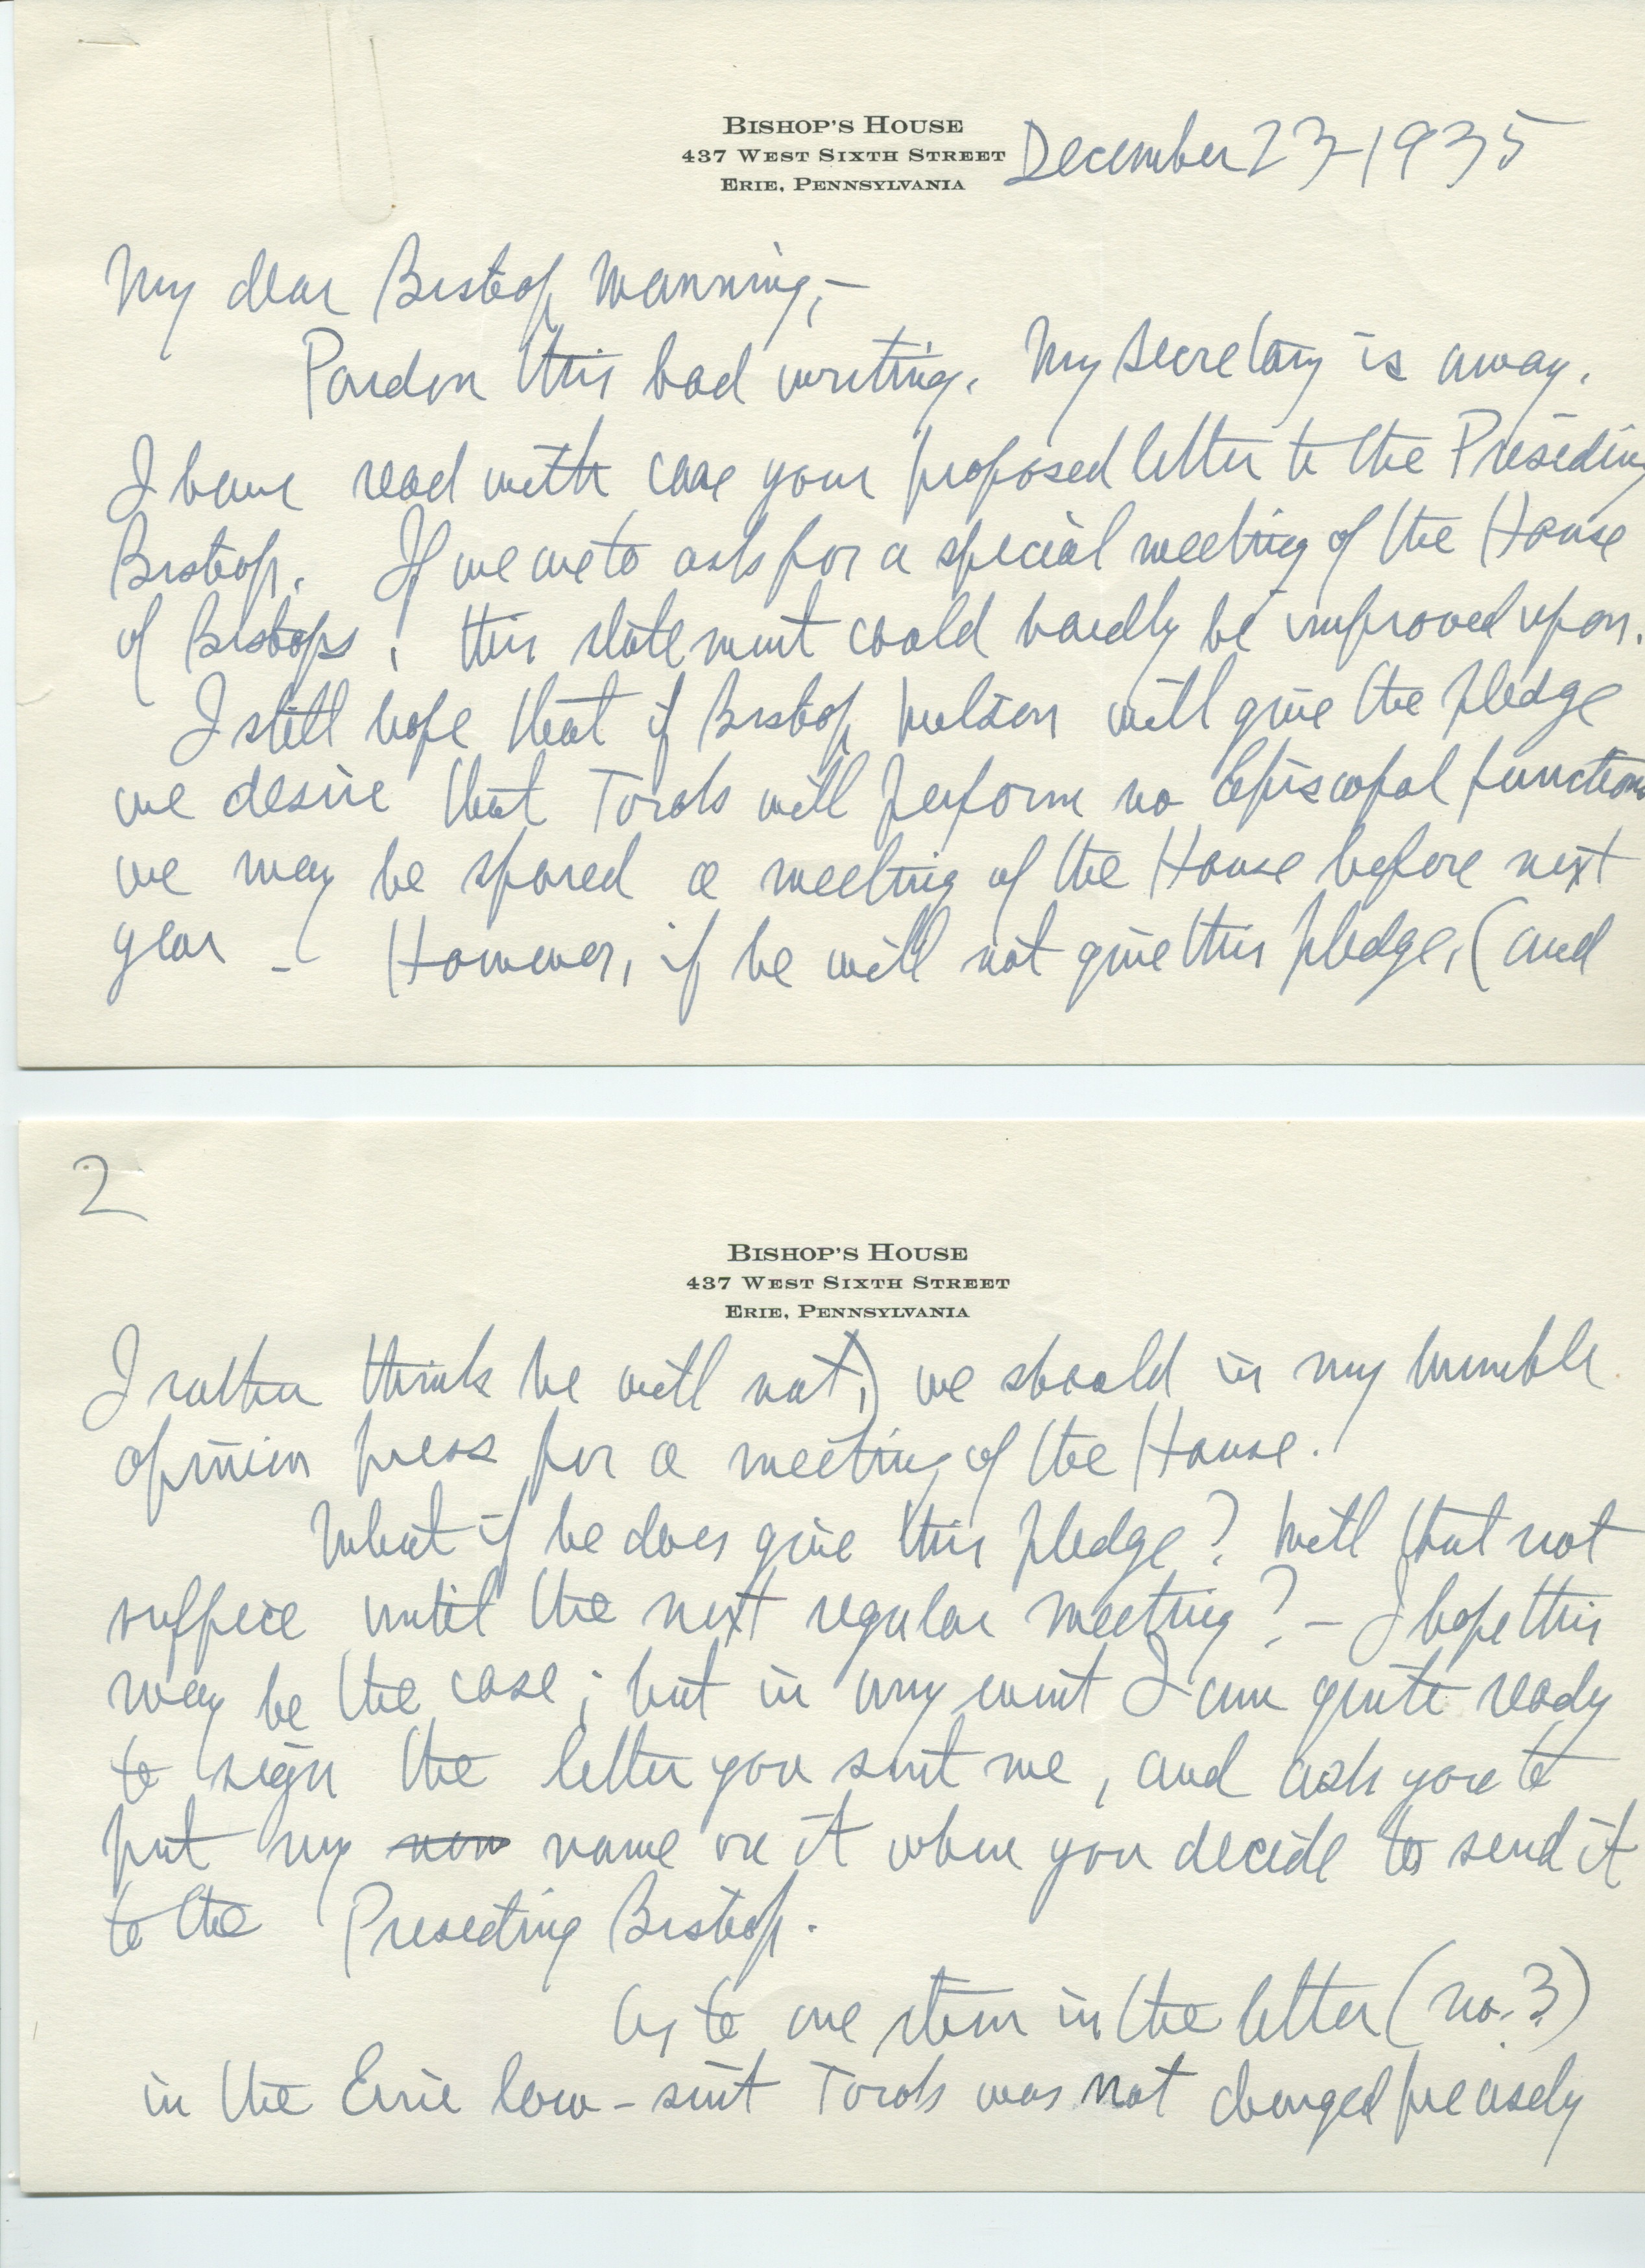 BISHOP'S HOUSE
437 WEST SIXTH STREET
ERIE, PENNSYLVANIA
December 23-1935
My dear Bishop Manning,-
Pardon this bad writing. My secretary is away.
I have read with care your proposed letter to the Presiding
Bishop. If we are to ask for a special meeting of the House
of Bishops, this statement could hardly be improved upon.
I still hope that if Bishop Wilson will give the pledge
we desire that Torok will perform no Episcopal functions
we may be spared a meeting of the House before next
year - However, if he will not give this pledge, (and
2
BISHOP'S HOUSE
437 WEST SIXTH STREET
ERIE, PENNSYLVANIA
I rather think he will not,) we should in my humble
opinion press for a meeting of the House.
What if he does give this pledge? Will that not
suffice until the next regular meeting? - I hope this
may be the case; but in any event I am quite ready
to sign the letter you sent me, and ask you to
put my now name on it when you decide to send it
to the Presiding Bishop.
As to one item in the letter (no. 3)
in the Erie law-suit Torok was not charged precisely